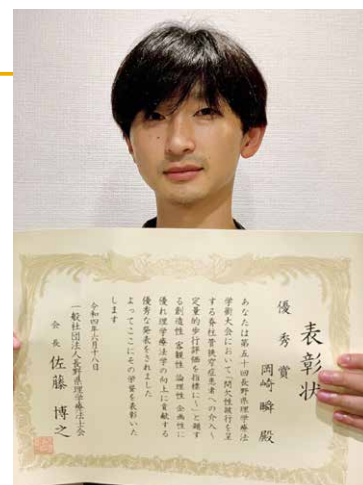 表彰状
優秀賞
岡崎瞬 殿
あなたは第五十回長野県理学療法
学術大会において「間欠性跛行を呈
する脊柱管狭窄症患者への介入～
定量的歩行評価を指標に～」と題す
る創造性、客観性、論理性、企画性に
優れ理学療法学の向上に貢献する
優秀な発表をされました
よってここにその栄誉を表彰いた
します
令和四年六月十八日
一般社団法人長野県理学療法士会
会長 佐藤博之